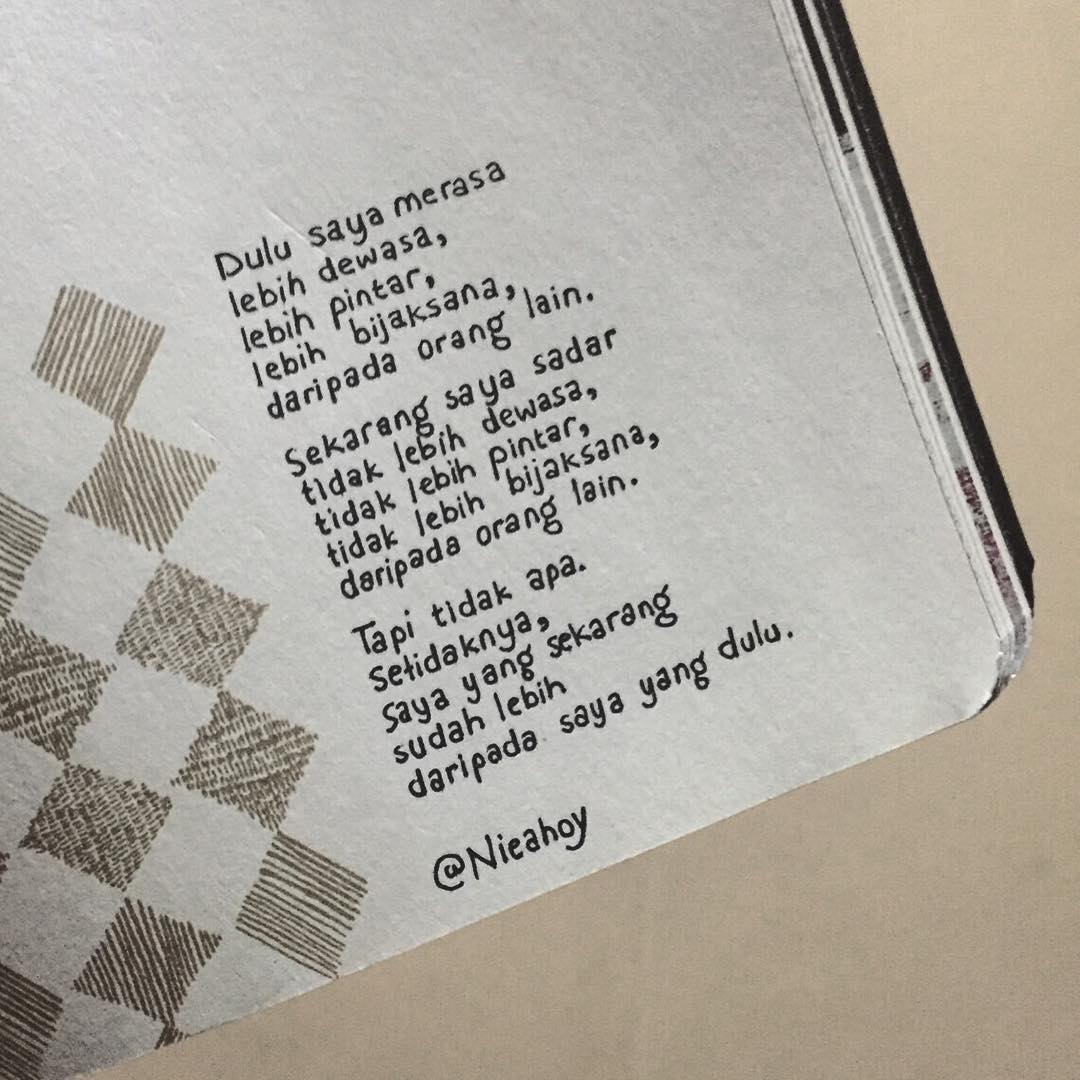 Dulu saya merasa
lebih dewasa,
lebih pintar,
lebih bijaksana,
daripada orang lain.
Sekarang saya sadar
tidak lebih dewasa,
tidak lebih pintar,
tidak lebih bijaksana,
daripada orang lain.
Tapi tidak apa.
setidaknya,
saya yang sekarang
sudah lebih
daripada saya yang dulu.
@Nieahoy